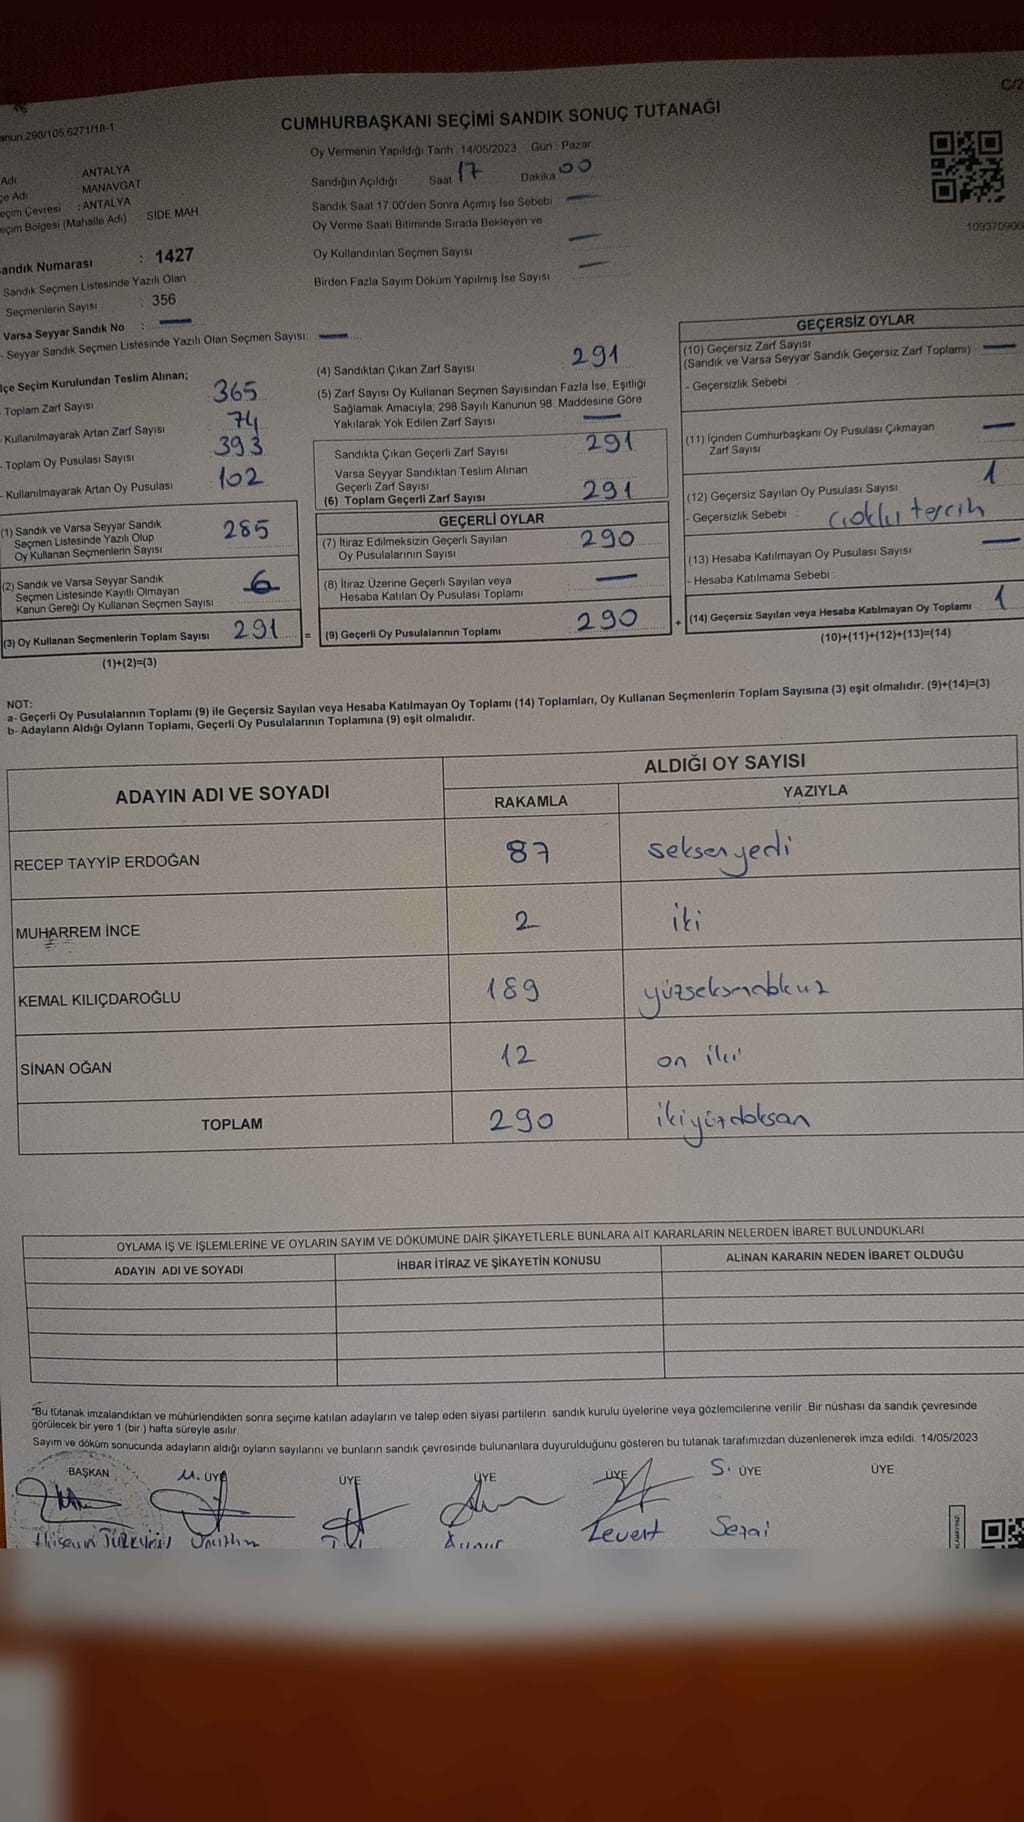 C/2
CUMHURBAŞKANI SEÇİMİ SANDIK SONUÇ TUTANAĞI
anun:298/105,6271/18-1
Oy Vermenin Yapıldığı Tarih : 14/05/2023 Gün : Pazar
Adı : ANTALYA
Sandığın Açıldığı Saat 17 Dakika 00
çe Adı MANAVGAT
eçim Çevresi : ANTALYA
Sandık Saat 17:00'den Sonra Açımış İse Sebebi —
eçim Bölgesi (Mahalle Adı) SİDE MAH
Oy Verme Saati Bitiminde Sırada Bekleyen ve
Oy Kullandırılan Seçmen Sayısı —
109370906
andık Numarası : 1427
Birden Fazla Sayım Döküm Yapılmış İse Sayısı —
Sandık Seçmen Listesinde Yazılı Olan
Seçmenlerin Sayısı : 356
Varsa Seyyar Sandık No : —
- Seyyar Sandık Seçmen Listesinde Yazılı Olan Seçmen Sayısı: —
lçe Seçim Kurulundan Teslim Alınan;
- Toplam Zarf Sayısı 365
- Kullanılmayarak Artan Zarf Sayısı 74
- Toplam Oy Pusulası Sayısı 393
- Kullanılmayarak Artan Oy Pusulası 102
(1) Sandık ve Varsa Seyyar Sandık
Seçmen Listesinde Yazılı Olup
Oy Kullanan Seçmenlerin Sayısı 285
(2) Sandık ve Varsa Seyyar Sandık
Seçmen Listesinde Kayıtlı Olmayan
Kanun Gereği Oy Kullanan Seçmen Sayısı 6
(3) Oy Kullanan Seçmenlerin Toplam Sayısı 291 =
(1)+(2)=(3)
(4) Sandıktan Çıkan Zarf Sayısı 291
(5) Zarf Sayısı Oy Kullanan Seçmen Sayısından Fazla İse, Eşitliği
Sağlamak Amacıyla, 298 Sayılı Kanunun 98. Maddesine Göre
Yakılarak Yok Edilen Zarf Sayısı —
Sandıkta Çıkan Geçerli Zarf Sayısı 291
Varsa Seyyar Sandıktan Teslim Alınan
Geçerli Zarf Sayısı
(6) Toplam Geçerli Zarf Sayısı 291
GEÇERLİ OYLAR
(7) İtiraz Edilmeksizin Geçerli Sayılan
Oy Pusulalarının Sayısı 290
(8) İtiraz Üzerine Geçerli Sayılan veya
Hesaba Katılan Oy Pusulası Toplamı —
(9) Geçerli Oy Pusulalarının Toplamı 290 +
GEÇERSİZ OYLAR
(10) Geçersiz Zarf Sayısı
(Sandık ve Varsa Seyyar Sandık Geçersiz Zarf Toplamı) —
- Geçersizlik Sebebi :
(11) İçinden Cumhurbaşkanı Oy Pusulası Çıkmayan
Zarf Sayısı —
(12) Geçersiz Sayılan Oy Pusulası Sayısı 1
- Geçersizlik Sebebi : çoklu tercih
(13) Hesaba Katılmayan Oy Pusulası Sayısı —
- Hesaba Katılmama Sebebi :
(14) Geçersiz Sayılan veya Hesaba Katılmayan Oy Toplamı 1
(10)+(11)+(12)+(13)=(14)
NOT:
a- Geçerli Oy Pusulalarının Toplamı (9) ile Geçersiz Sayılan veya Hesaba Katılmayan Oy Toplamı (14) Toplamları, Oy Kullanan Seçmenlerin Toplam Sayısına (3) eşit olmalıdır. (9)+(14)=(3)
b- Adayların Aldığı Oyların Toplamı, Geçerli Oy Pusulalarının Toplamına (9) eşit olmalıdır.
ADAYIN ADI VE SOYADI
ALDIĞI OY SAYISI
RAKAMLA YAZIYLA
RECEP TAYYİP ERDOĞAN 87 seksenyedi
MUHARREM İNCE 2 iki
KEMAL KILIÇDAROĞLU 189 yüzseksendokuz
SİNAN OĞAN 12 on iki
TOPLAM 290 ikiyüzdoksan
OYLAMA İŞ VE İŞLEMLERİNE VE OYLARIN SAYIM VE DÖKÜMÜNE DAİR ŞİKAYETLERLE BUNLARA AİT KARARLARIN NELERDEN İBARET BULUNDUKLARI
ADAYIN ADI VE SOYADI İHBAR İTİRAZ VE ŞİKAYETİN KONUSU ALINAN KARARIN NEDEN İBARET OLDUĞU
*Bu tutanak imzalandıktan ve mühürlendikten sonra seçime katılan adayların ve talep eden siyasi partilerin sandık kurulu üyelerine veya gözlemcilerine verilir. Bir nüshası da sandık çevresinde
görülecek bir yere 1 (bir) hafta süreyle asılır.
Sayım ve döküm sonucunda adayların aldığı oyların sayılarını ve bunların sandık çevresinde bulunanlara duyurulduğunu gösteren bu tutanak tarafımızdan düzenlenerek imza edildi. 14/05/2023
BAŞKAN M. ÜYE ÜYE ÜYE ÜYE S. ÜYE ÜYE
Hüseyin Levent Sezai